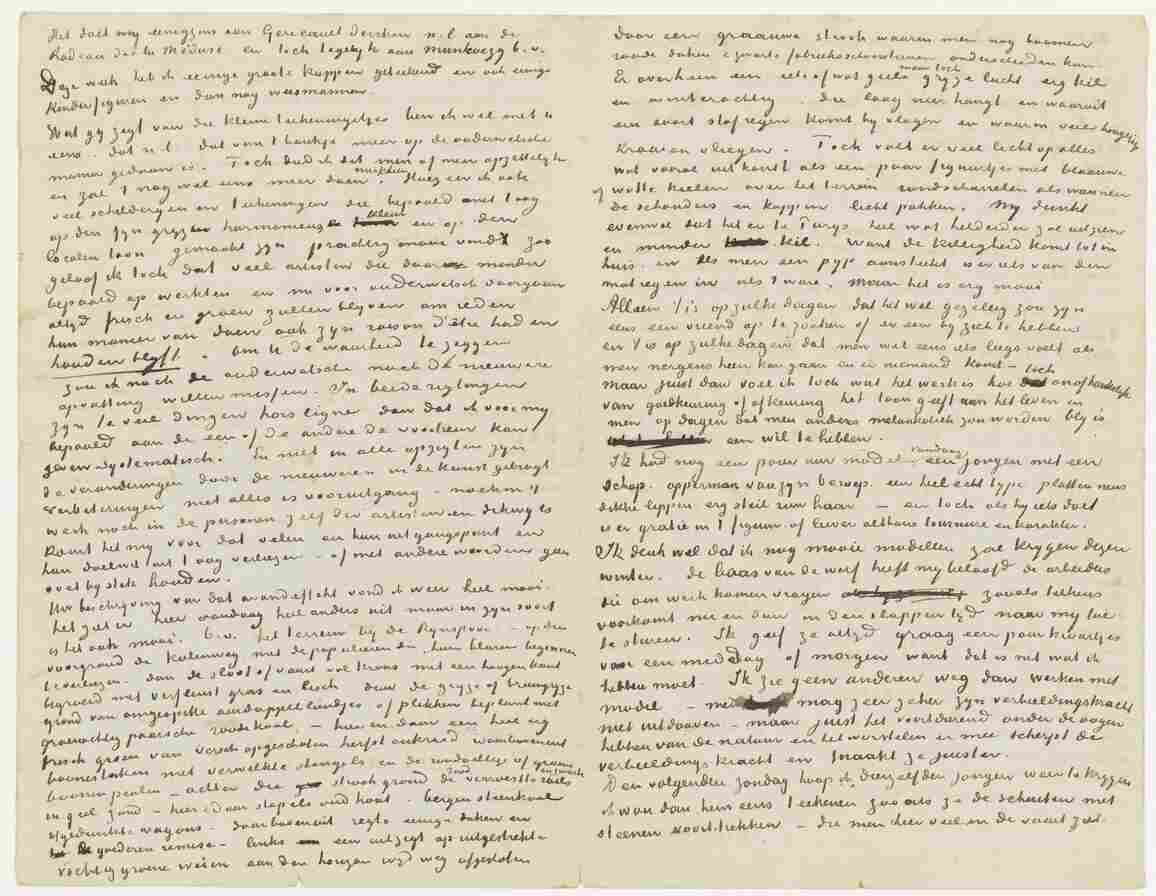 Het doet my eenigzins aan Gericault denken n.l. aan de
Radeau de la Méduse en toch tegelyk aan Munkaczy b.v.
Deze week heb ik eenige groote koppen geteekend en ook eenige
kinderfiguren en dan nog weesmannen.
Wat gy zegt van die kleine teekeningetjes ben ik wel met U
eens. dat n.l. dat van 't bankje meer op de ouderwetsche
manier gedaan is. Toch deed ik dat min of meer opzettelyk
en zal 't nog wel eens meer doen misschien. Hoezeer ik ook
veel schilderyen en teekeningen die bepaald met 't oog
op den fyn gryzen harmonieuse kleur en op den
localen toon gemaakt zyn prachtig mooi vindt zoo
geloof ik toch dat veel artisten die daar minder
bepaald op werkten en nu voor ouderwetsch doorgaan
altyd frisch en groen zullen blyven om reden
hun manier van doen ook zyn raison d'être had en
houden blyft. Om U de waarheid te zeggen
zou ik noch de ouderwetsche noch de nieuwere
opvatting willen missen. In beide rigtingen
zyn te veel dingen hors ligne dan dat ik voor my
bepaald aan de een of de andere de voorkeur kan
geven systematisch. En niet in alle opzigten zyn
de veranderingen door de nieuweren in de kunst gebragt
verbeteringen niet alles is vooruitgang – noch in 't
werk noch in de personen zelf der artisten en dikwijls
komt het my voor dat velen en hun uitgangspunt en
hun doelwit uit 't oog verliezen – of met andere woorden geen
voet by stek houden.
Uw beschryving van dat avondeffekt vond ik weer heel mooi.
het ziet er hier vandaag heel anders uit maar in zyn soort
is het ook mooi. b.v. het terrein by de Rynspoor – op den
voorgrond de kolenweg met de populieren die hun blaren beginnen
te verliezen. dan de sloot of vaart vol kroos met een hoogen kant
begroeid met verflenst gras en lisch daar de gryze of bruingryze
grond van omgespitte aardappellandjes of plekken beplant met
groenachtig paarsche roode kool – hier en daar een heel erg
frisch groen van versch opgeschoten herfst onkruid waarbovenuit
boonestaken met verwelkte stengels en de roodachtige of groene
boonenpeulen – achter die strook grond de rood verroeste zwarte rails
in geel zand – hier & daar stapels oud hout. bergen steenkool
afgedankte wagons. daarbovenuit regts eenige daken en
de goederen remise – links een uitzigt op uitgestrekte
vochtig groene weien aan den horizon wyd weg afgesloten
door een graauwe strook waarin men nog boomen
roode daken & zwarte fabriekschoorsteenen onderscheiden kan.
Er overheen een iets of wat geele maar toch gryze lucht erg kil
en winterachtig. die laag neer hangt en waaruit
een soort stofregen komt by vlagen en waarin veel hongerige
kraaien vliegen. Toch valt er veel licht op alles
wat vooral uitkomt als een paar figuurtjes met blaauwe
of witte kielen over het terrein rondscharrelen als wanneer
de schouders en koppen licht pakken. My dunkt
evenwel dat het er te Parys heel wat helderder zal uitzien
en minder kil. Want de killigheid komt tot in
huis. en als men een pyp aansteekt is er iets van den
motregen in als 't ware. maar het is erg mooi
Alleen 't is op zulke dagen dat het wel gezellig zou zyn
eens een vriend op te zoeken of er een by zich te hebben
en 't is op zulke dagen dat men wat eens iets leegs voelt als
men nergens heen kan gaan en er niemand komt –
maar juist dan voel ik toch wat het werk is hoe dat toch onafhankelyk
van goedkeuring of afkeuring het toon geeft aan het leven en
men op dagen dat men anders melankoliek zou worden bly is
een wil te hebben.
Ik had nog een paar uur model vandaag een jongen met een
schop. opperman van zyn beroep. een heel echt type platten neus
dikke lippen erg steil ruw haar – en toch als hy iets doet
is er gratie in 't figuur of liever althans tournure en karakter.
Ik denk wel dat ik nog mooie modellen zal krygen dezen
winter. de baas van de werf heeft my beloofd de arbeiders
die om werk komen vragen zooals telkens
voorkomt nu en dan in den slappen tyd naar my toe
te sturen. Ik geef ze altyd graag een paar kwartjes
voor een middag of morgen want dat is net wat ik
hebben moet. Ik zie geen anderen weg dan werken met
model – mag zeer zeker zyn verbeeldingskracht
niet uitdooven – maar juist het voortdurend onder de oogen
hebben van de natuur en het worstelen er mee scherpt de
verbeeldingskracht en maakt ze juister.
Den volgenden zondag hoop ik dienzelfden jongen weer te krygen
& wou dan hem eens teekenen zooals ze de schuiten met
steenen voorttrekken – die men hier veel in de vaart ziet.